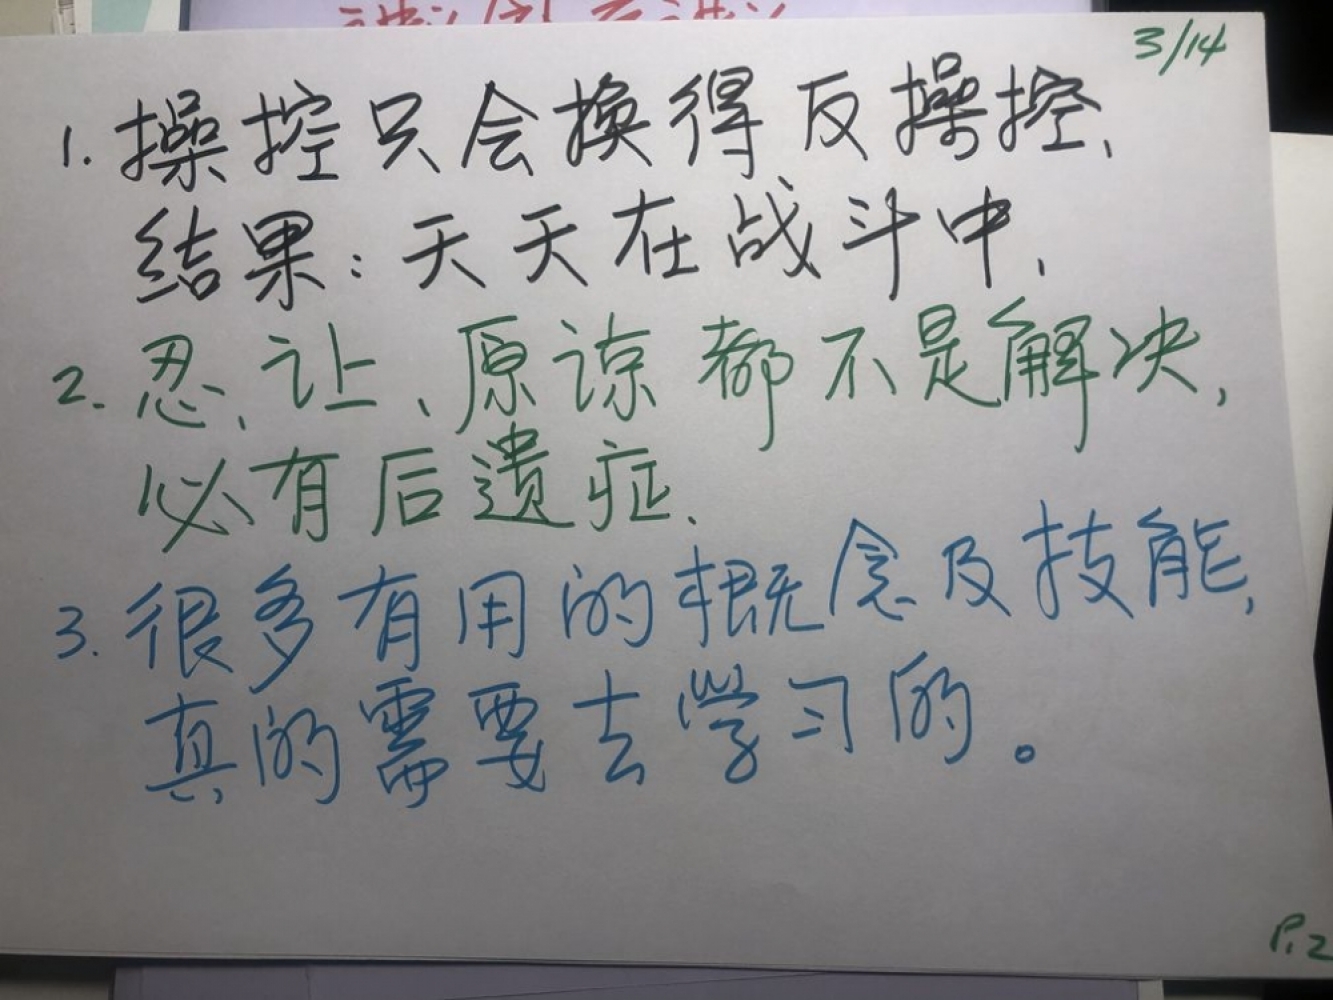 3/14
1. 操控只会换得反操控、
结果：天天在战斗中.
2. 忍、让、原谅都不是解决,
必有后遗症.
3. 很多有用的概念及技能,
真的需要去学习的。
P.2